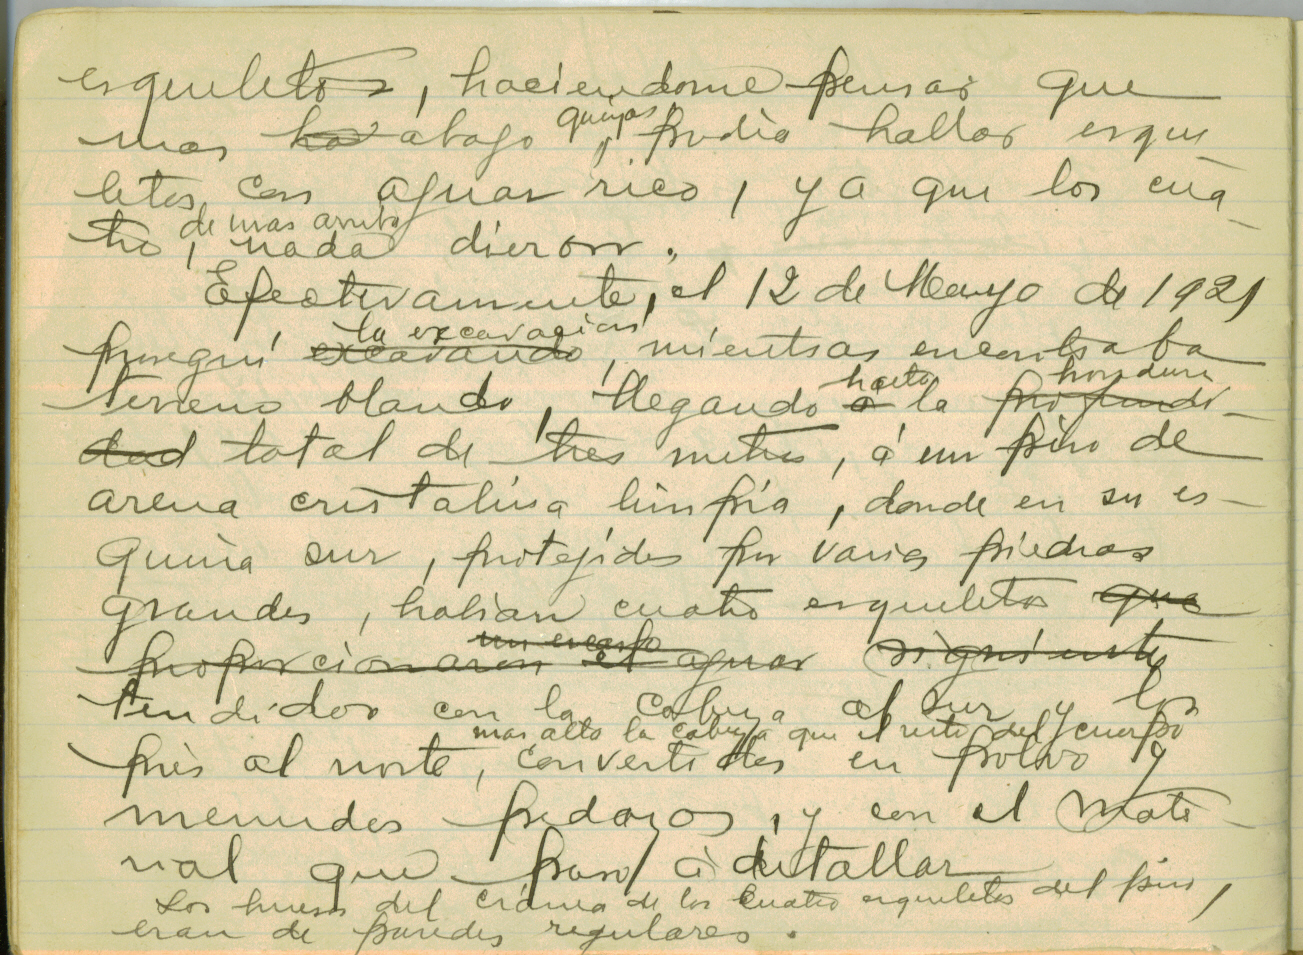 esqueletos, haciendome pensar que
mas ha abajo quizas, podia hallar esque
letos con ajuar rico, ya que los cua-
tro, de mas arriba nada dieron.
Efectivamente, el 12 de Mayo de 1921
proseguí excavando la excavación, mientras encontraba
terreno blando, llegando á hasta la profundi- hondura
dad total de tres metros, á un piso de
arena cristalina limpia, donde en su es-
quina sur, protejidos por varias piedras
grandes, habian cuatro esqueletos que
proporcionaron el un escaso ajuar siguiente
tendidos con la cabeza al sur y los
piés al norte, mas alto la cabeza que el resto del cuerpo convertidos en polvo y
menudos pedazos, y con el mate-
rial que paso á detallar
Los huesos del cránea de los cuatro esqueletos del piso,
eran de paredes regulares.